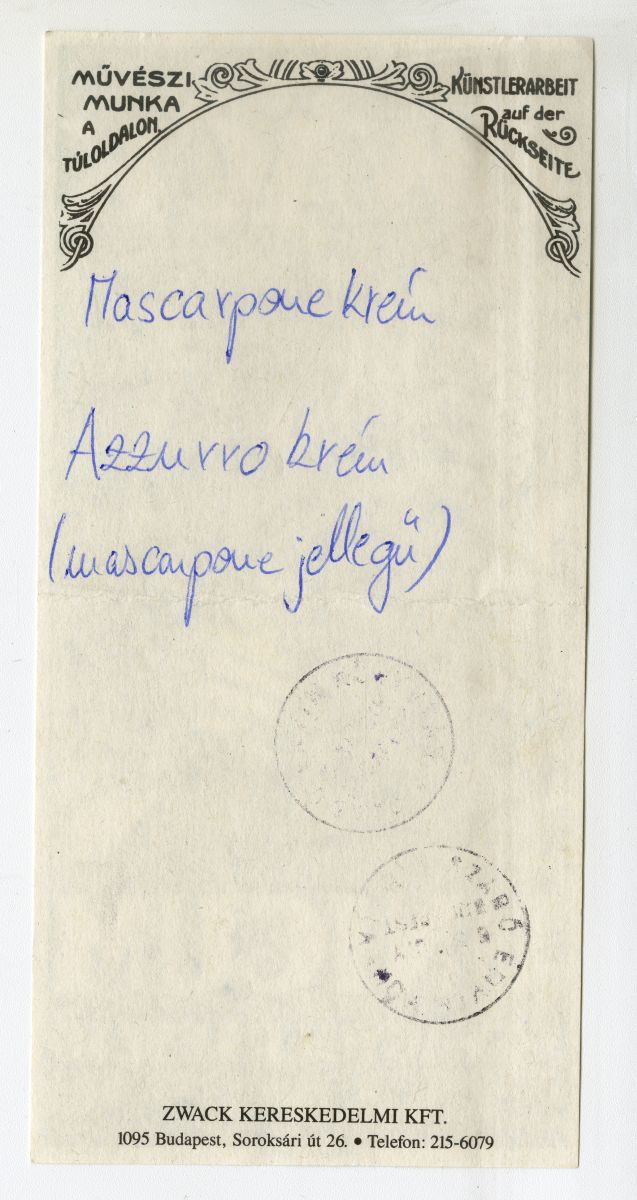 MŰVÉSZI
MUNKA
A
TÚLOLDALON.
KÜNSTLERARBEIT
auf der
RÜCKSEITE
Mascarpone krém
Azzurro krém
(mascarpone jellegű)
SZABÓ ERVIN
ZWACK KERESKEDELMI KFT.
1095 Budapest, Soroksári út 26. • Telefon: 215-6079